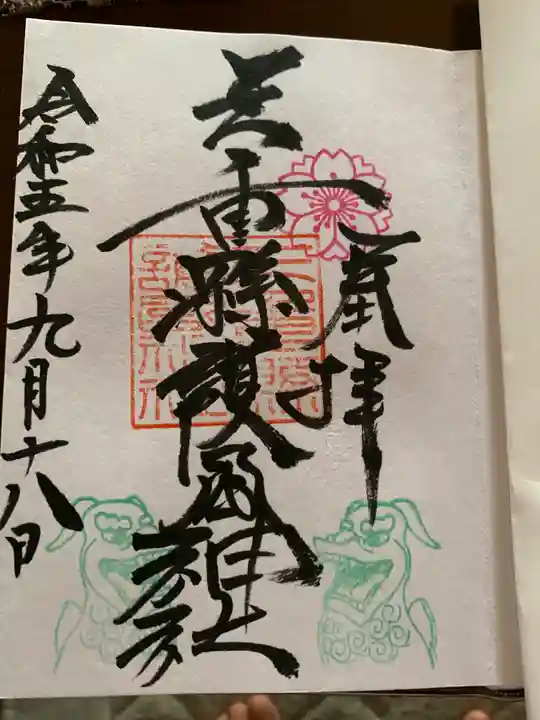 奉拝
三重縣護國神社
令和五年九月十八日